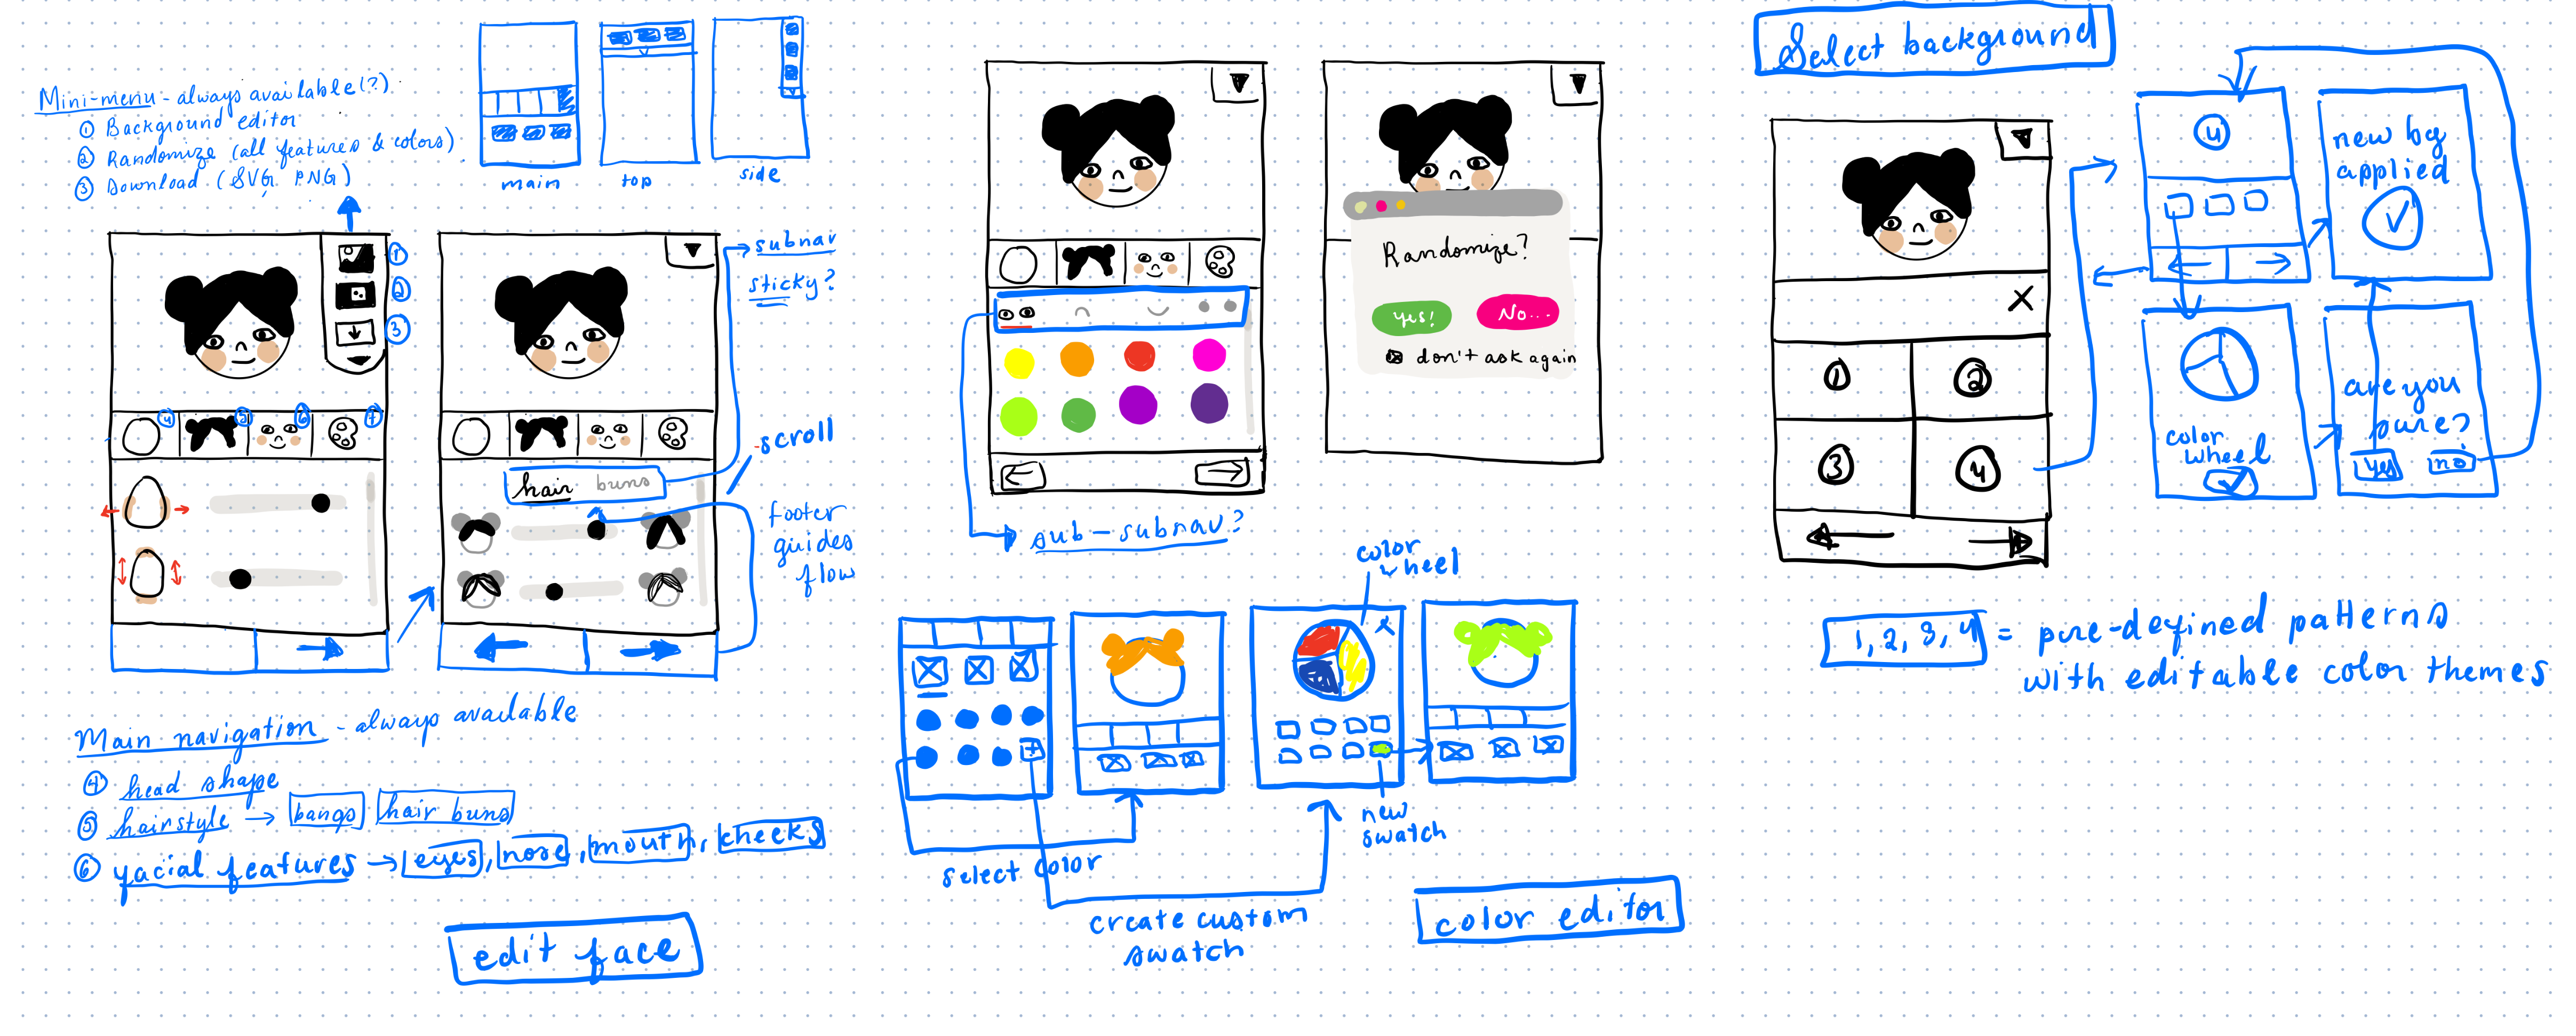 Mini-menu - always available(?)
① Background editor
② Randomize (all features & colors)
③ Download (SVG, PNG)
main
top
side
1
2
3
4
5
6
7
subnav
sticky?
scroll
hair buns
footer
guides
flow
Main navigation - always available
④ head shape
⑤ hairstyle → bangs hair buns
⑥ facial features → eyes, nose, mouth, cheeks
edit face
Randomize?
yes!
No...
don't ask again
sub-subnav?
color
wheel
x
+
select color
new
swatch
create custom
swatch
color editor
Select background
X
1
2
3
4
4
new bg
applied
color
wheel
are you
sure?
yes
no
1, 2, 3, 4 = pre-defined patterns
with editable color themes